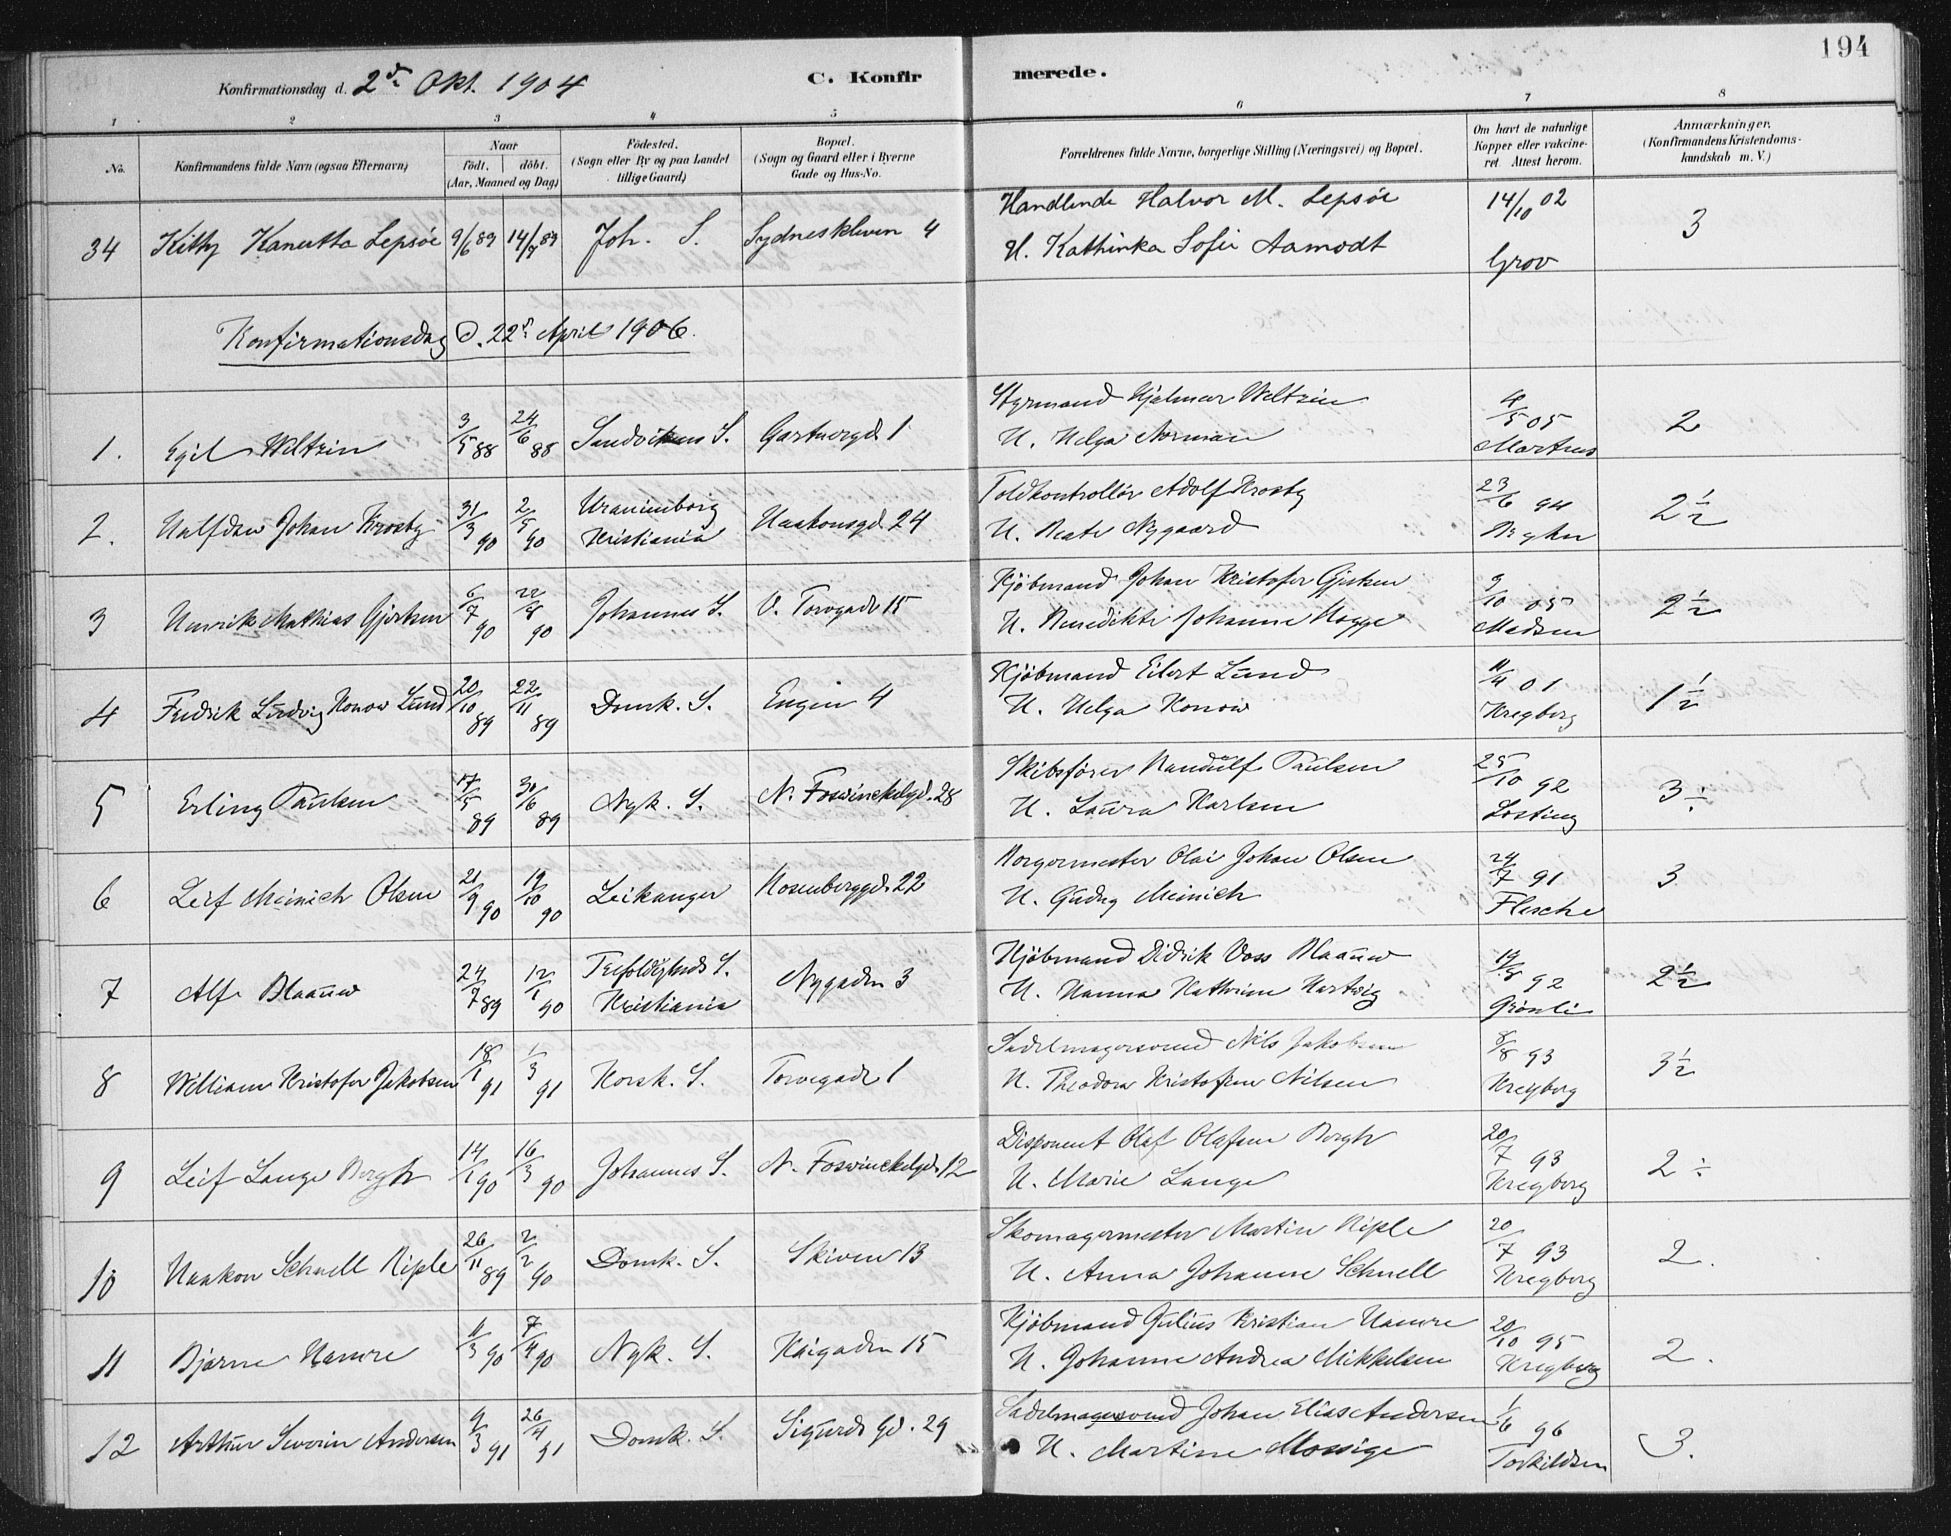 194
Konfirmationsdag d. 2d. Okt. 1904
C. Konfirmerede.
1 2 3 4 5 6 7 8
No.
Konfirmandens fulde Navn (ogsaa Efternavn)
Naar
født. døbt.
(Aar, Maaned og Dag)
Fødested.
(Sogn eller By og paa Landet
tillige Gaard)
Bopæl.
(Sogn og Gaard eller i Byerne
Gade og Hus-No.
Forældrenes fulde Navne, borgerlige Stilling (Næringsvei) og Bopæl.
Om havt de naturlige
Kopper eller vakcine-
ret. Attest herom.
Anmærkninger.
(Konfirmandens Kristendoms-
kundskab m. V.)
34 Kitty Kanutta Lepsøe 9/6 89 14/7 89 Joh. S. Sydneskleven 4
Handlende Halvor M. Lepsøe
H. Kathinka Sofie Aamodt
14/10 02
Grov
3
Konfirmationsdag d. 22d. April 1906.
1. Egil Weltzin 3/5 88 24/6 88 Sandvikens S. Gartnergd. 1
Styrmand Hjalmar Weltzin
H. Helga Norman
4/5 05
Martens
2
2. Halfdan Johan Krosby 31/3 90 2/5 90 Uranienborg Kristiania Haakonsgd. 24
Toldkontrollør Adolf Krosby
H. Beate Nygaard
23/6 94
2½
3 Henrik Mathias Gjertsen 6/7 90 22/8 90 Johannes S. V. Torvgade 15
Kjøbmand Johan Kristofer Gjertsen
H. Benedikte Johanne Hagge
9/10 05
Madsen
2½
4 Fredrik Ludvig Konow Lund 20/10 89 22/11 89 Domk. S. Engen 4
Kjøbmand Eilert Lund
H. Helga Konow
11/4 01
Kregborg
1½
5 Erling Paulsen 17/5 89 30/6 89 Nyk. S. N. Foswinckelgd. 28
Skibsfører Randulf Paulsen
H. Laura Karlsen
25/10 92
Losting
3 ÷
6 Leif Meinich Olsen 21/9 90 19/10 90 Leikanger Rosenberggd. 22
Borgermester Olai Johan Olsen
H. Gudny Meinich
24/7 91
Flesche
3
7 Alf Blaauw 24/7 89 12/1 90 Trefoldigheds S. Kristiania Nygaden 3
Kjøbmand Didrik Voss Blaauw
H. Hanna Kathrine Hartvig
19/8 92
Grønli
2½
8 William Kristofer Jakobsen 18/1 91 1/3 91 Korsk. S. Torvegade 1
Sadelmagersvend Nils Jakobsen
H. Theodora Kristofine Nilsen
8/8 93
Kregborg
3½
9 Leif Lange Bergh 14/1 90 16/3 90 Johannes S. N. Foswinckelgd. 12
Disponent Olaf Olafsen Bergh
H. Marie Lange
20/7 93
Kregborg
2 ÷
10 Haakon Schnell Riple 26/11 89 2/2 90 Domk. S. Skiven 13
Skomagermester Martin Riple
H. Anna Johanne Schnell
20/7 93
Kregborg
2.
11 Bjarne Hamre 11/3 90 7/4 90 Nyk. S. Kaigaden 15
Kjøbmand Julius Kristian Hamre
H. Johanne Andrea Mikkelsen
20/10 95
Kregborg
2.
12 Arthur Severin Andersen 9/3 91 26/4 91 Domk. S. Sigurds Gd. 29
Sadelmagersvend Johan Elias Andersen
H. Martine Mossige
1/6 96
Torkildsen
3.